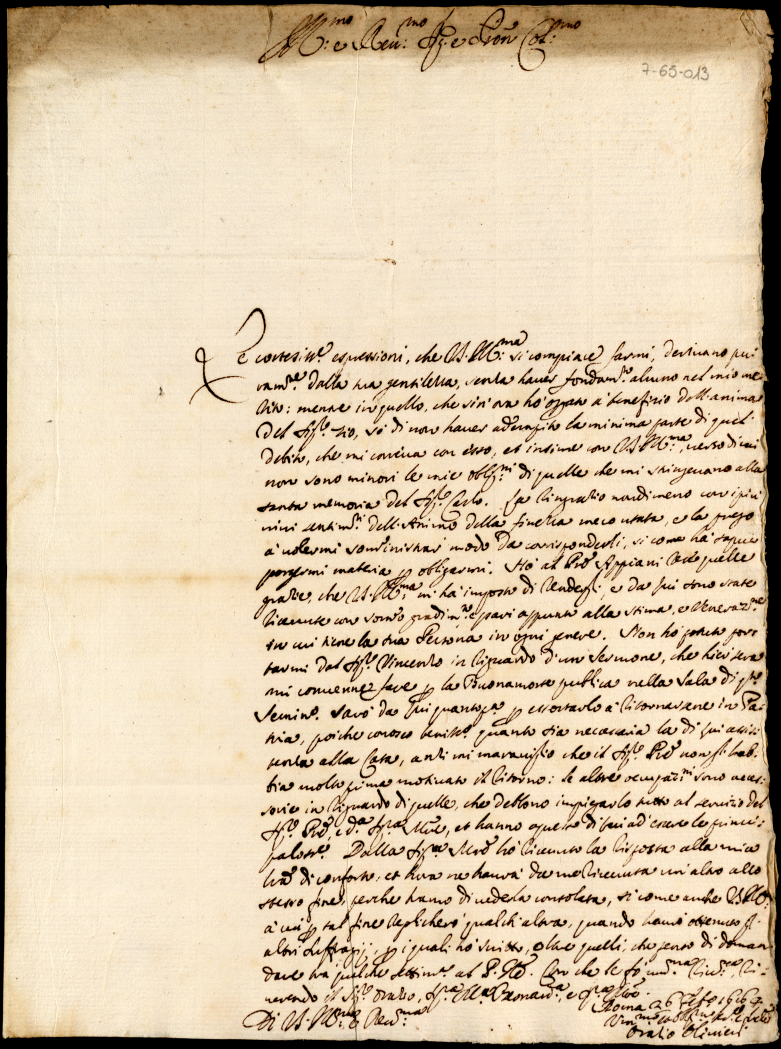 Ill:mo e Reu:mo Sig:r e Pron Col:mo
7-65-013
Le cortesiss:e espressioni, che V.S. Ill:ma si compiace farmi, deriuano pu
ram:te dalla sua gentilezza, senza hauer fondam:to alcuno nel mio me
rito: mentre in quello, che sin'ora hò operato à benefizio dell'anima
del Sig:r Zio, sò di non hauer adempito la minima parte di quel
debito, che mi correua con esso, et insieme con V.S. Ill:ma, verso di cui
non sono minori le mie oblig:ni di quelle che mi stringeuano alla
santa memoria del Sig:r Carlo. La ringrazio nondimeno con i più
viui sentim:ti dell'Animo della finezza meco usata, e la prego
à volermi somministrar modo da corrisponderli, si come hà saputo
porgermi materia p obligarmi. Hò al Pre Appiani rese quelle
grazie, che V.S. Ill:ma mi hà imposto di renderli, e da lui sono state
riceuute con sommo gradim:to e pari appunto alla stima, e veneraz:ne
in cui tiene la sua Persona in ogni genere. Non hò potuto por
tarmi dal Sig:r Vincenzo in riguardo di un Sermone, che hieri sera
mi conuenne fare p la Buonamorte publica nella Sala di q:to
Semin:o. Sarò da lui quanto p:a p essortarlo à ritornarsene in Pa
tria, poiche conosco beniss:o quanto sia necessaria la di lui assis
tenza alla Casa, anzi mi marauiglio che il Sig:r Pre non gli hab
bia molto prima motiuato il ritorno: le altre occupaz:ni sono acces
sorie in riguardo di quelle, che debbono impiegarlo tutto al seruizio del
Sig:r Pre, e d:a Sig:ra Mre, et hanno à essere di lui ad essere le princi
paliss:e. Dalla Sig:ra Mre hò riceuuto la risposta alla mia
lra di conforto, et hora ne haurà da me riceuuta un altra allo
stesso fine, perche bramo di vederla consolata, si come anche V.S. Ill:
à cui p tal fine replicherò qualch'altra, quando haurò ottenuto gl'
altri suffragij, p i quali hò scritto, oltre quelli, che penso di doman
dare tra qualche settim:a al P. Gle. Con che le fò um:ma riu:za, ri
uerendo il Sig:r Orazio, Sig:ra
Di V.S. Ill:ma e Reu:ma
Roma 26
Orazio Oliuieri